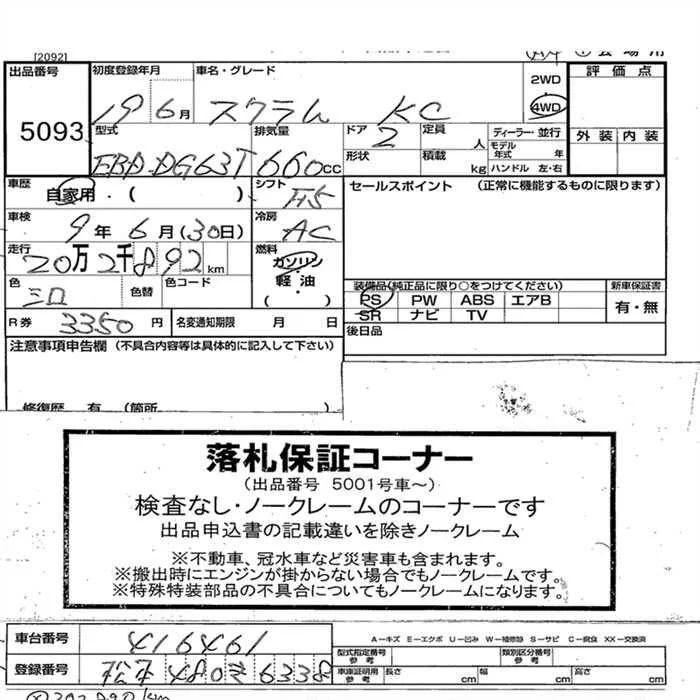 [2092]
出品番号 5093
初度登録年月 19 6月
車名・グレード スクラム KC
2WD
4WD
評価点
型式 EBD-DG63T
排気量 660cc
ドア 2
定員 人
ディーラー・並行
モデル年式 年
外装 内装
形状
積載 kg
ハンドル 左・右
車歴 自家用・( )
シフト F5
セールスポイント (正常に機能するものに限ります)
車検 9年6月(30日)
冷房 AC
走行 20万2千892km
燃料 ガソリン
軽・油
( )
色 シロ
色替
色コード
装備品(純正品に限り○をつけてください)
新車保証書
PS PW ABS エアB
SR ナビ TV
有・無
R券 3350円
名変通知期限 月 日
後日品
注意事項申告欄 (不具合内容等は具体的に記入して下さい)
修復歴 有 (箇所
落札保証コーナー
(出品番号 5001号車～)
検査なし・ノークレームのコーナーです
出品申込書の記載違いを除きノークレーム
※不動車、冠水車など災害車も含まれます。
※搬出時にエンジンが掛からない場合でもノークレームです。
※特殊特装部品の不具合についてもノークレームになります。
車台番号 416461
A－キズ E－エクボ U－凹み W－補修跡 S－サビ C－腐食 XX－交換済
型式指定番号 参考
類別区分番号 参考
登録番号 松本 480 き 6338
車庫証明用 参考 長さ cm 幅 cm 高さ cm